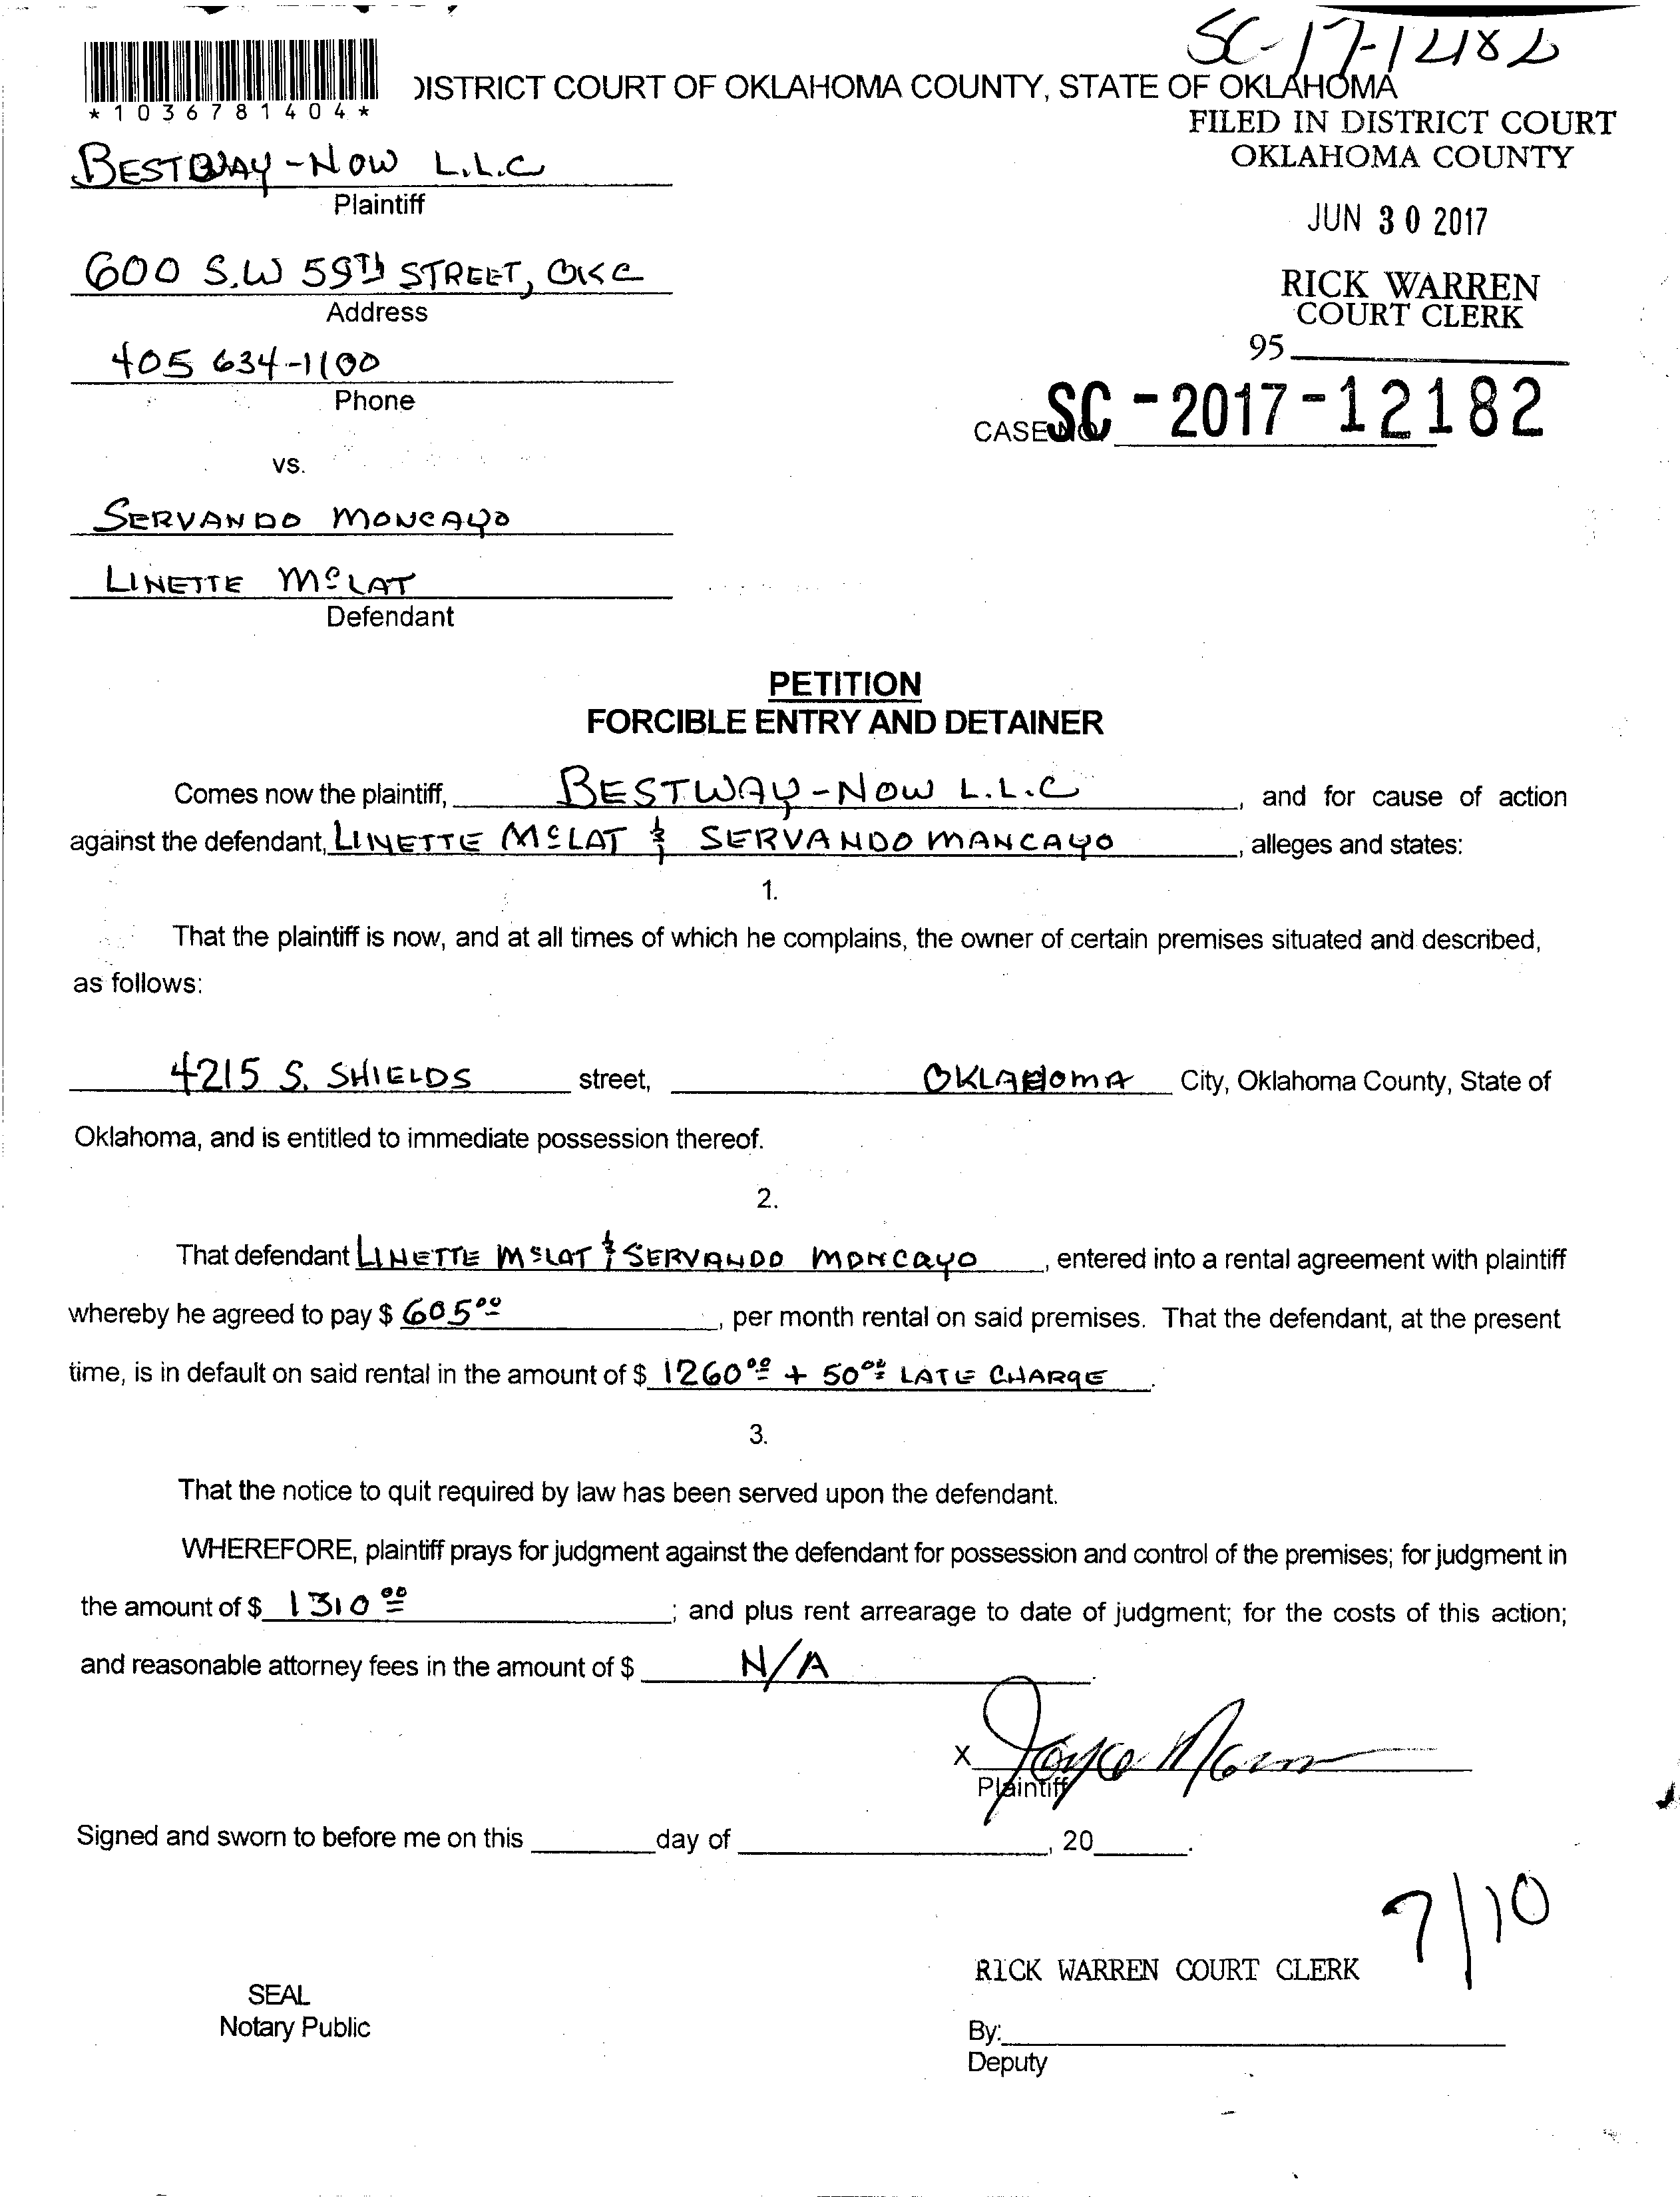 SC-17-12182
*1036781404*
DISTRICT COURT OF OKLAHOMA COUNTY, STATE OF OKLAHOMA
FILED IN DISTRICT COURT
OKLAHOMA COUNTY
BESTWAY-NOW L.L.C
Plaintiff
JUN 30 2017
600 S.W 59Th STREET, OKC
Address
RICK WARREN
COURT CLERK
405 634-1100
Phone
95
CASE NO. SC-2017-12182
vs.
SERVANDO MONCAYO
LINETTE McLAT
Defendant
PETITION
FORCIBLE ENTRY AND DETAINER
Comes now the plaintiff, BESTWAY-NOW L.L.C, and for cause of action
against the defendant, LINETTE McLAT & SERVANDO MANCAYO, alleges and states:
1.
That the plaintiff is now, and at all times of which he complains, the owner of certain premises situated and described,
as follows:
4215 S. SHIELDS street, OKLAHOMA City, Oklahoma County, State of
Oklahoma, and is entitled to immediate possession thereof.
2.
That defendant LINETTE McLAT & SERVANDO MONCAYO, entered into a rental agreement with plaintiff
whereby he agreed to pay $ 605.00, per month rental on said premises. That the defendant, at the present
time, is in default on said rental in the amount of $ 1260.00 + 50.00 LATE CHARGE.
3.
That the notice to quit required by law has been served upon the defendant.
WHEREFORE, plaintiff prays for judgment against the defendant for possession and control of the premises; for judgment in
the amount of $ 1310.00; and plus rent arrearage to date of judgment; for the costs of this action;
and reasonable attorney fees in the amount of $ N/A.
X Joyce
Plaintiff
Signed and sworn to before me on this ____ day of ____, 20____.
7/10
RICK WARREN COURT CLERK
SEAL
Notary Public
By:
Deputy